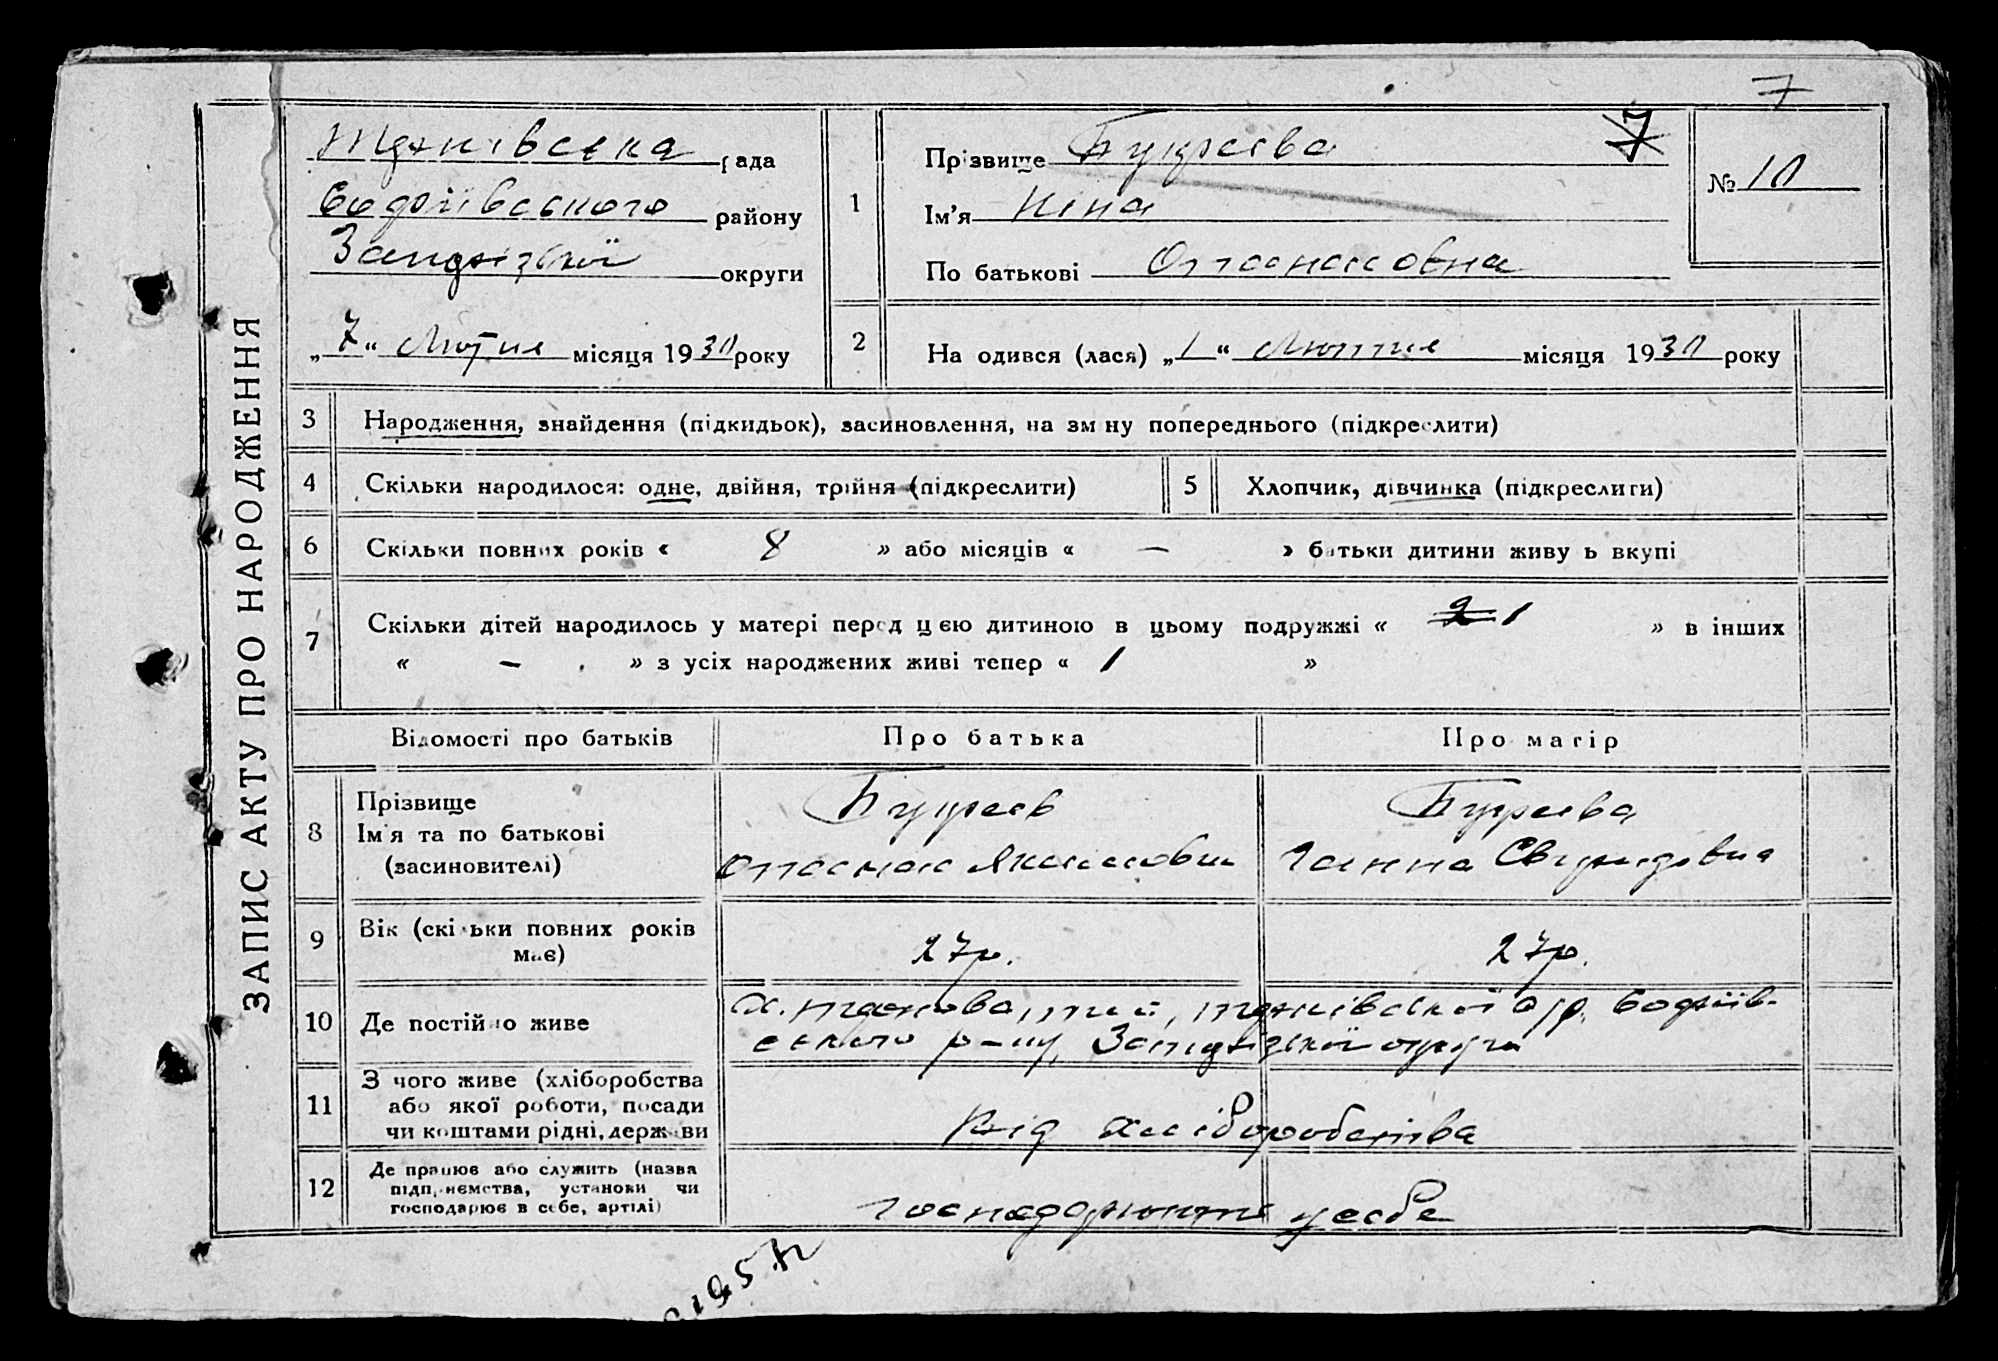 7
ЗАПИС АКТУ ПРО НАРОДЖЕННЯ
рада
району
округи
„7“ Лютня місяця 1930 року
1
Прізвище Букреєва 7
Ім’я Ніна
По батькові Опанасовна
№ 10
2
На одився (лася) „1“ Лютня місяця 1930 року
3 Народження, знайдення (підкидьок), засиновлення, на зм ну попереднього (підкреслити)
4 Скільки народилося: одне, двійня, трійня (підкреслити)
5 Хлопчик, дівчинка (підкреслити)
6 Скільки повних років « 8 » або місяців « — » батьки дитини живу ь вкупі
7 Скільки дітей народилось у матері перед цією дитиною в цьому подружжі « 2 1 » в інших
« – » з усіх народжених живі тепер « 1 »
Відомості про батьків
Про батька
Про матір
8 Прізвище
Ім’я та по батькові
(засиновителі)
Букреєв
Опанас Якимович
Букреєва
Ганна
9 Вік (скільки повних років
має)
27р.
27р.
10 Де постійно живе
х.
р-ну, округи
11 З чого живе (хліборобства
або якої роботи, посади
чи коштами рідні, держави
Від хліборобства
12 Де працює або служить (назва
підп. ємства, установи чи
господарює в себе, артілі)
господарюють у себе